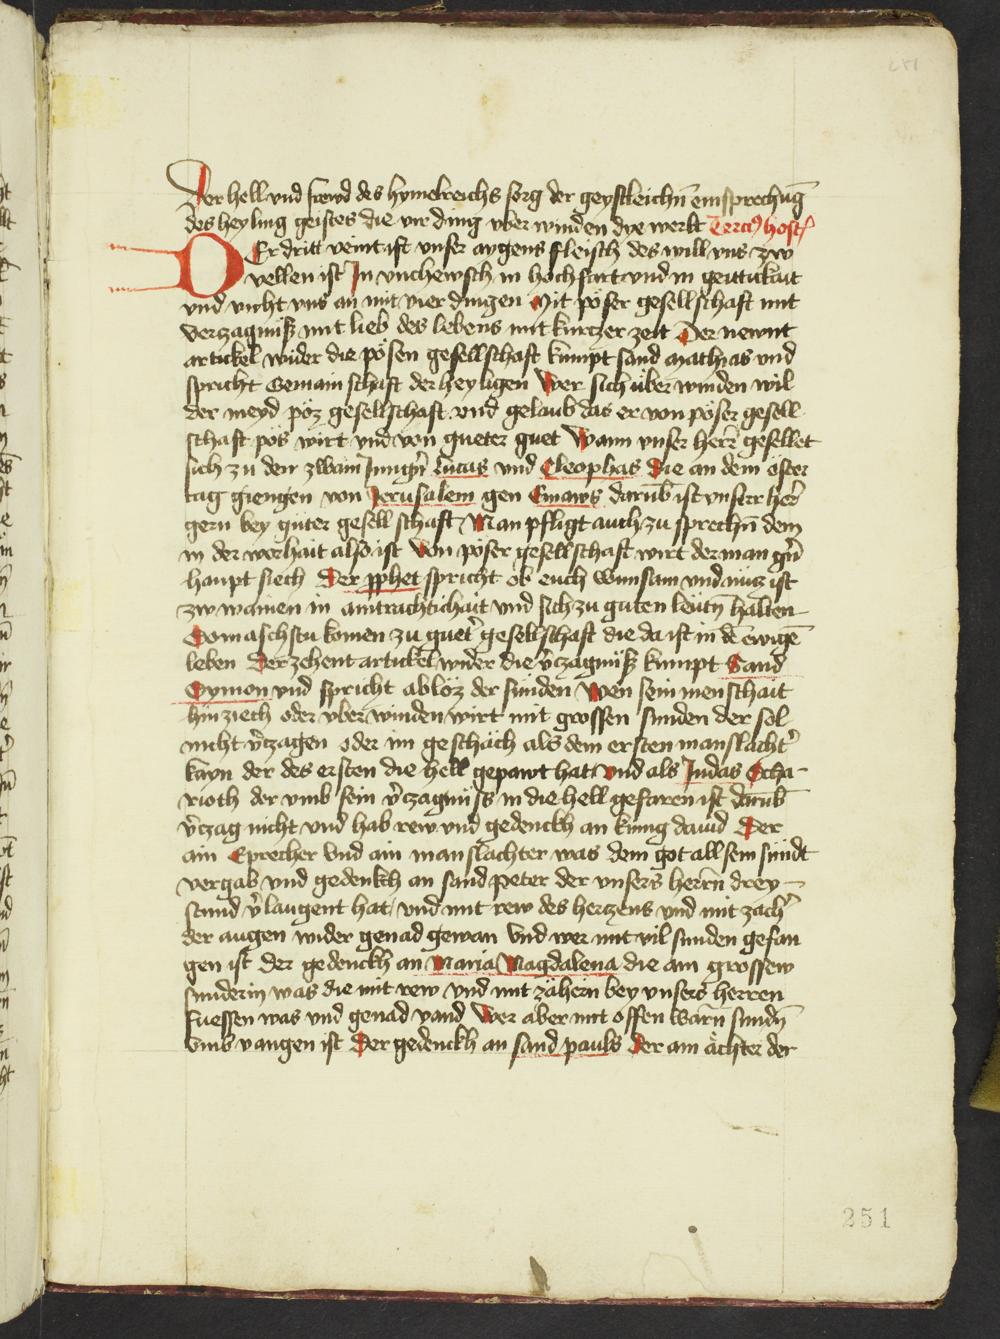 Der hell vnd frewd des hymelreichs sorg der geystleichn̄ einsprechūg
des heyling geistes die vir ding vber winden dye werlt Terciꝰ host
Er dritt veint ist vnser aygens fleisch des will vns zw
D vellen ist In vnchewsch in hochfart vnd in geittikait
vnd vicht vns an mit vier dingen Mit pöser gesellschaft mit
verzagnüss mit lieb des lebens mit kurczer zeit Der newnt
artickel wider die pösen gesellschaft kumpt sand Mathias vnd
spricht Gemainschaft der heyligen Wer sich über winden wil
der meyd pöz gesellschaft vnd gelaub das er von pöser gesell
schaft pös wirt vnd von gueter guet Wann vnser herr̄ gesellet
sich zu den zwain Jungern̄ Lucas vnd Cleophas die an dem öster
tag giengen von Jerusalem gen Emaws darūb ist vnserr her̄
gern bey güter gesellschaft Man pfligt auch zu sprechn̄ dem
in der worhait also ist Von pöser gesellschaft wirt der man gn̄
haupt siech Der ꝓphet spricht ob euch wunsam vnd nücz ist
zw wainen in aintrachtichait vnd sich zu guten leütn̄ halten
Domaschstu komen zu guet̄ gesellschaft die da ist in dē ewigē
leben Der zehent artickel wider die v̄czagnüss kumpt Sand
Symon vnd spricht abloz der sünden Wen sein menschait
hin ziech oder vber winden wirt mit grossen sunden der sol
nicht v̄czagen oder im geschäch als dem ersten manslacht̄
kayn der des ersten die hell gepawt hat vnd als Judas Scha-
rioth der vmb sein v̄czagnüss in die hell gefaren ist darūb
v̄czag nicht vnd hab rew vnd gedenckh an künig dauid Der
ain Eprecher vnd ain manslachter was dem got all sein sündt
vergab vnd gedenkh an sand peter der vnsers herrn̄ drey-
stund v̄laugent hat vnd mit rew des hertzens vnd mit zäch̄
der augen wider genad gewan vnd wer mit vil sunden gefan
gen ist der gedenckh an Maria Magdalena die ain grossew
sunderin was die mit rew vnd mit zähern bey vnsers herren
fuessen was vnd genad vand Wer aber mit offen warn̄ sundn̄
vmb vangen ist Der gedenckh an sand pauls Der ain ächter der
251